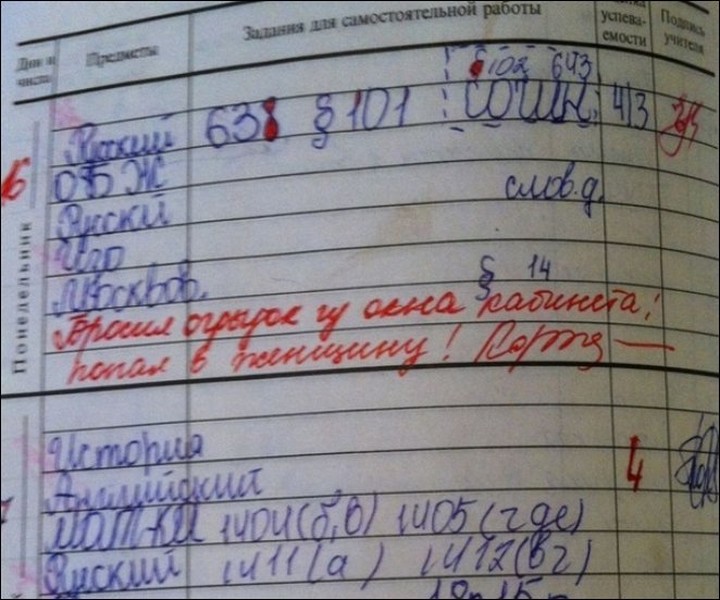 Дни и числа Предметы Задания для самостоятельной работы успева- емости Подпись учителя
§102 643
16 Русский 638 § 101 СОЧИН. 4/3
ОБЖ
Русский слов.д.
Изо
Москвов. § 14
Бросил огрызок из окна кабинета!
попал в женщину!
Понедельник
История
Английский 4
МАТ-КА 1404(б,в) 1405(где)
Русский 1411(а) 1412(вг)